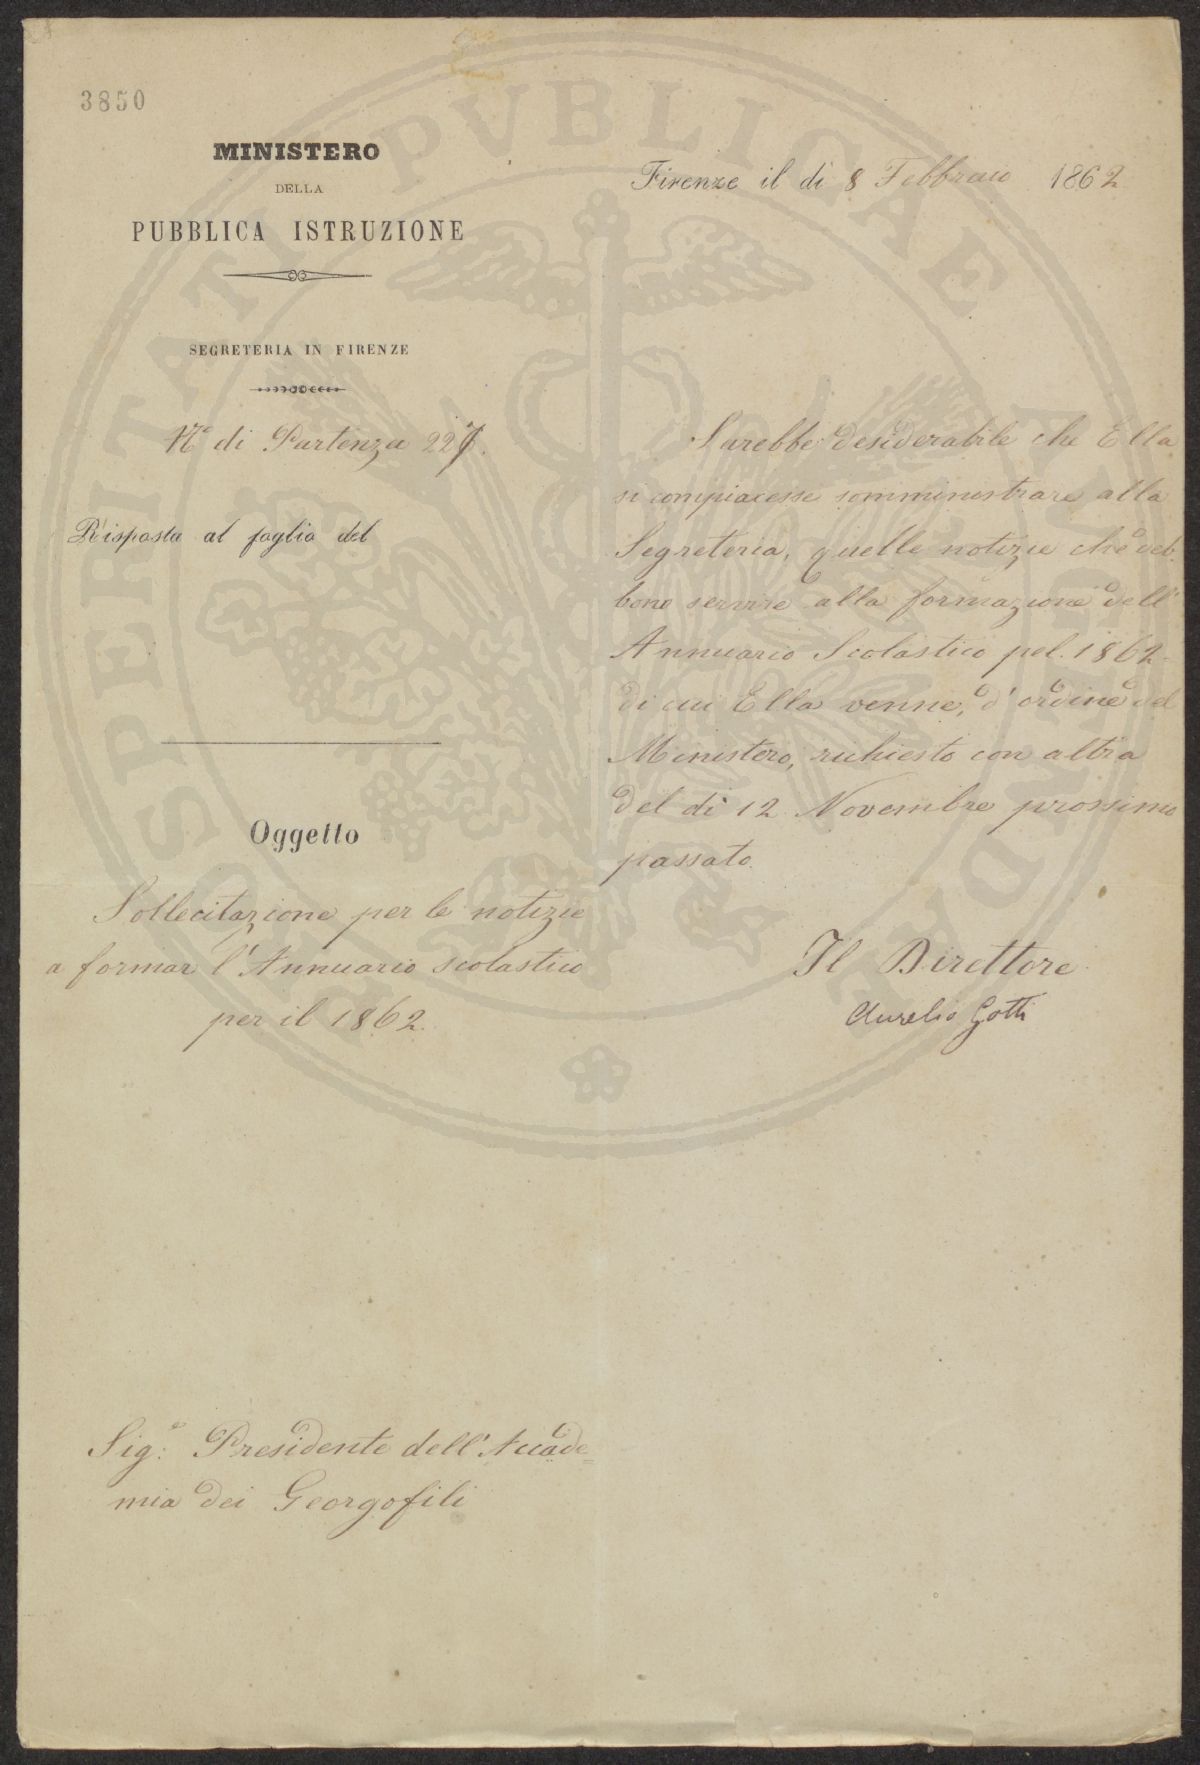 3850
MINISTERO
DELLA
PUBBLICA ISTRUZIONE
SEGRETERIA IN FIRENZE
N.º di Partenza 227.
Risposta al foglio del
Oggetto
Sollecitazione per le notizie
a formar l'Annuario scolastico
per il 1862.
Firenze il dì 8 Febbraio 1862
Sarebbe desiderabile che Ella
si compiacesse somministrare alla
Segreteria, quelle notizie che deb-
bono servire alla formazione dell'
Annuario Scolastico pel 1862-
di cui Ella venne, d'ordine del
Ministero, richiesto con altra
del dì 12 Novembre prossimo
passato.
Il Direttore
Aurelio Gotti
Sig.e Presidente dell'Accade=
mia dei Georgofili
PROSPERITATI PVBLICAE AVGENDAE